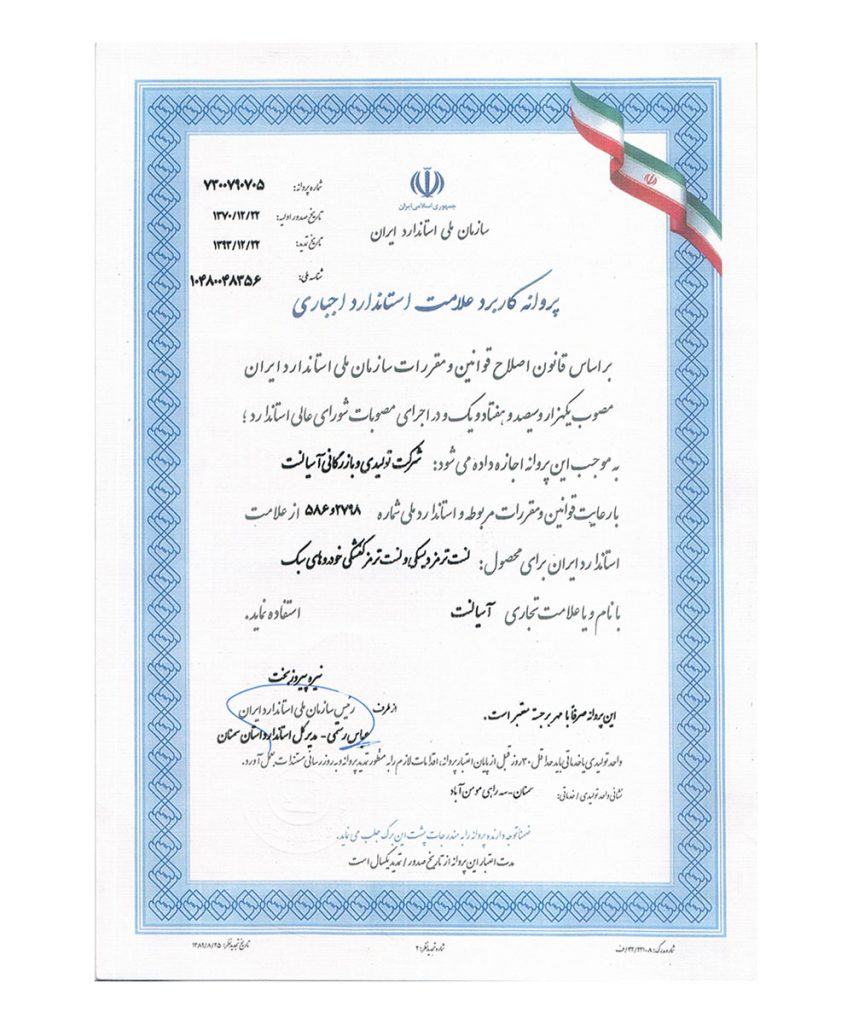 جمهوری اسلامی ایران
سازمان ملی استاندارد ایران
شماره پروانه: ۷۳۰۰۷۹۰۷۰۵
تاریخ صدور اولیه: ۱۳۷۰/۱۲/۲۲
تاریخ تمدید: ۱۳۹۳/۱۲/۲۲
شناسه ملی: ۱۰۴۸۰۰۴۸۳۵۶
پروانه کاربرد علامت استاندارد اجباری
بر اساس قانون اصلاح قوانین و مقررات سازمان ملی استاندارد ایران
مصوب یکهزار و سیصد و هفتاد و یک و در اجرای مصوبات شورای عالی استاندارد ؛
به موجب این پروانه اجازه داده می شود: شرکت تولیدی و بازرگانی آسیالنت
با رعایت قوانین و مقررات مربوطه و استاندارد ملی شماره ۲۷۹۸و۵۸۶ از علامت
استاندارد ایران برای محصول: لنت ترمز دیسکی و لنت ترمز کفشکی خودروهای سبک
با نام و یا علامت تجاری آسیالنت استفاده نماید.
نیره پیروزبخت
رئیس سازمان ملی استاندارد ایران
از طرف
عباس رستمی - مدیر کل استاندارد استان سمنان
این پروانه صرفاً با مهر برجسته معتبر است.
واحد تولیدی یا خدماتی باید حداقل ۳۰ روز قبل از پایان اعتبار پروانه، اقدامات لازم را به منظور تمدید پروانه و به روز رسانی مستندات بعمل آورد.
نشانی واحد تولیدی / خدماتی: سمنان-سه راهی مومن آباد
ضمناً توجه دارنده پروانه را به مندرجات پشت این برگ جلب می نماید.
مدت اعتبار این پروانه از تاریخ صدور / تمدید یکسال است
شماره مدرک: ف/۳۲/۲۲۱-۰۸
شماره تجدید نظر: ۲
تاریخ تجدید نظر: ۱۳۸۹/۸/۲۵